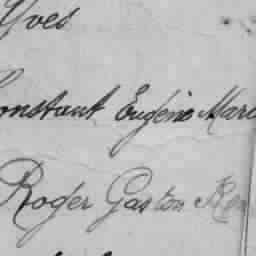 Yves
Constant Eugène Marc
Roger Gaston